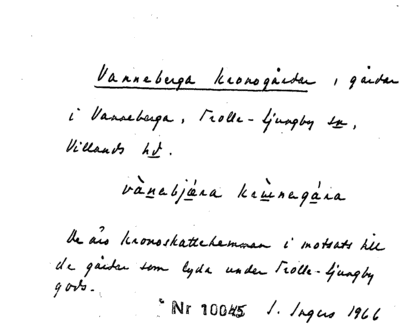 Vanneberga kronogårdar, gårdar
i Vanneberga, Trolle-Ljungby sn,
Villands hd.
vànebjæra krɯ̀negára
De äro kronoskattehemman i motsats till
de gårdar som lyda under Trolle-Ljungby
gods.
Nr 10045 I. Ingers 1966